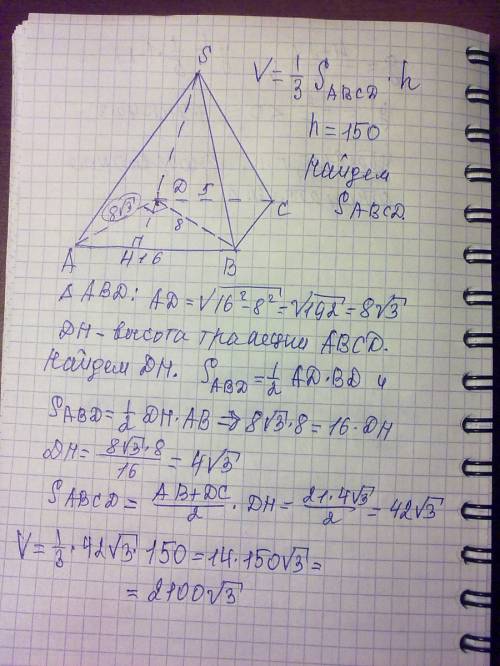 S
V = 1/3 S_ABCD · h
h = 150
Найдем
S_ABCD.
8√3
D
5
C
8
A
H 16
B
Δ ABD: AD = √(16² - 8²) = √192 = 8√3
DH - высота трапеции ABCD.
Найдем DH. S_ABD = 1/2 AD · BD и
S_ABD = 1/2 DH · AB ⇒ 8√3 · 8 = 16 · DH
DH = (8√3 · 8)/16 = 4√3
S_ABCD = (AB + DC)/2 · DH = (21 · 4√3)/2 = 42√3
V = 1/3 · 42√3 · 150 = 14 · 150√3 =
= 2100√3